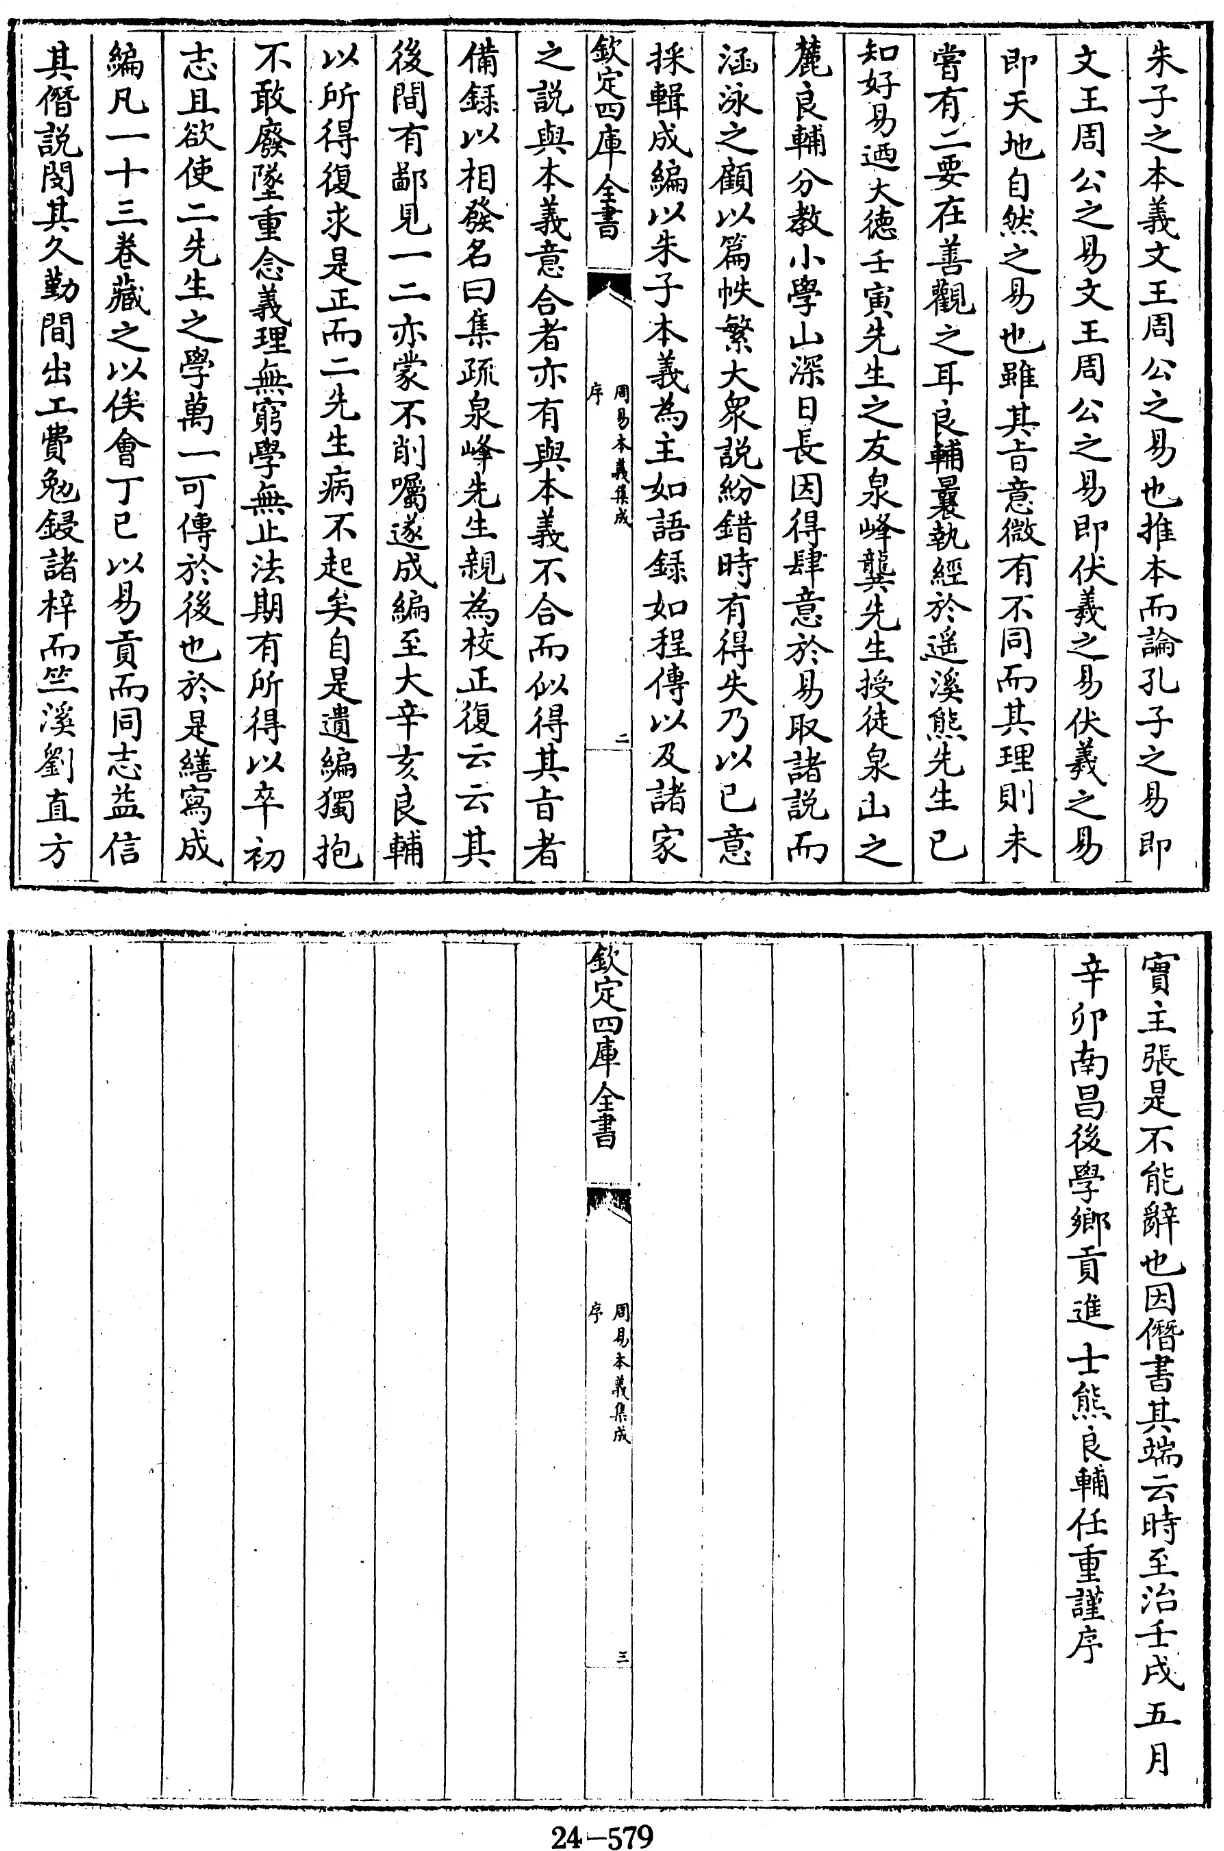 朱子之本義文王周公之易也推本而論孔子之易即
文王周公之易文王周公之易即伏羲之易伏羲之易
即天地自然之易也雖其㫖意微有不同而其理則未
嘗有二要在善觀之耳良輔曩執經於遥溪熊先生已
知好易迺大徳壬寅先生之友泉峰龔先生授徒泉山之
麓良輔分教小學山深日長因得肆意於易取諸説而
涵泳之顧以篇帙繁大衆説紛錯時有得失乃以已意
採輯成編以朱子本義為主如語録如程傳以及諸家
欽定四庫全書
周易本義集成
序
二
之説與本義意合者亦有與本義不合而似得其㫖者
備録以相發名曰集疏泉峰先生親為校正復云云其
後間有鄙見一二亦蒙不削囑遂成編至大辛亥良輔
以所得復求是正而二先生病不起矣自是遺編獨抱
不敢廢墜重念義理無窮學無止法期有所得以卒初
志且欲使二先生之學萬一可傳於後也於是繕寫成
編凡一十三卷藏之以俟會丁已以易貢而同志益信
其僭説閔其久勤間出工費勉鋟諸梓而竺溪劉直方
實主張是不能辭也因僭書其端云時至治壬戌五月
辛卯南昌後學鄉貢進士熊良輔任重謹序
欽定四庫全書
周易本義集成
序
三
24-579